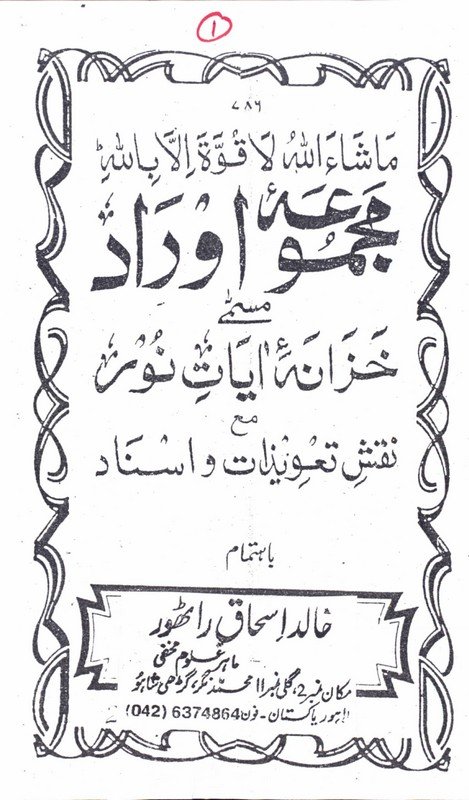 ۱
۷۸۶
مَاشَاءَ اللهُ لَا قُوَّةَ اِلَّا بِاللهِ
مَجمُوعَهٔ اورَاد
مسمّٰے
خَزَانَهٔ اٰیَاتِ نُور
مع
نقشِ تعویذات و اسناد
باہتمام
خالد اسحاق راٹھور
ماہر علوم مخفی
مکان نمبر 2، گلی نمبر 11 محمد نگر، گڑھی شاہو
لاہور پاکستان - فون (042) 6374864